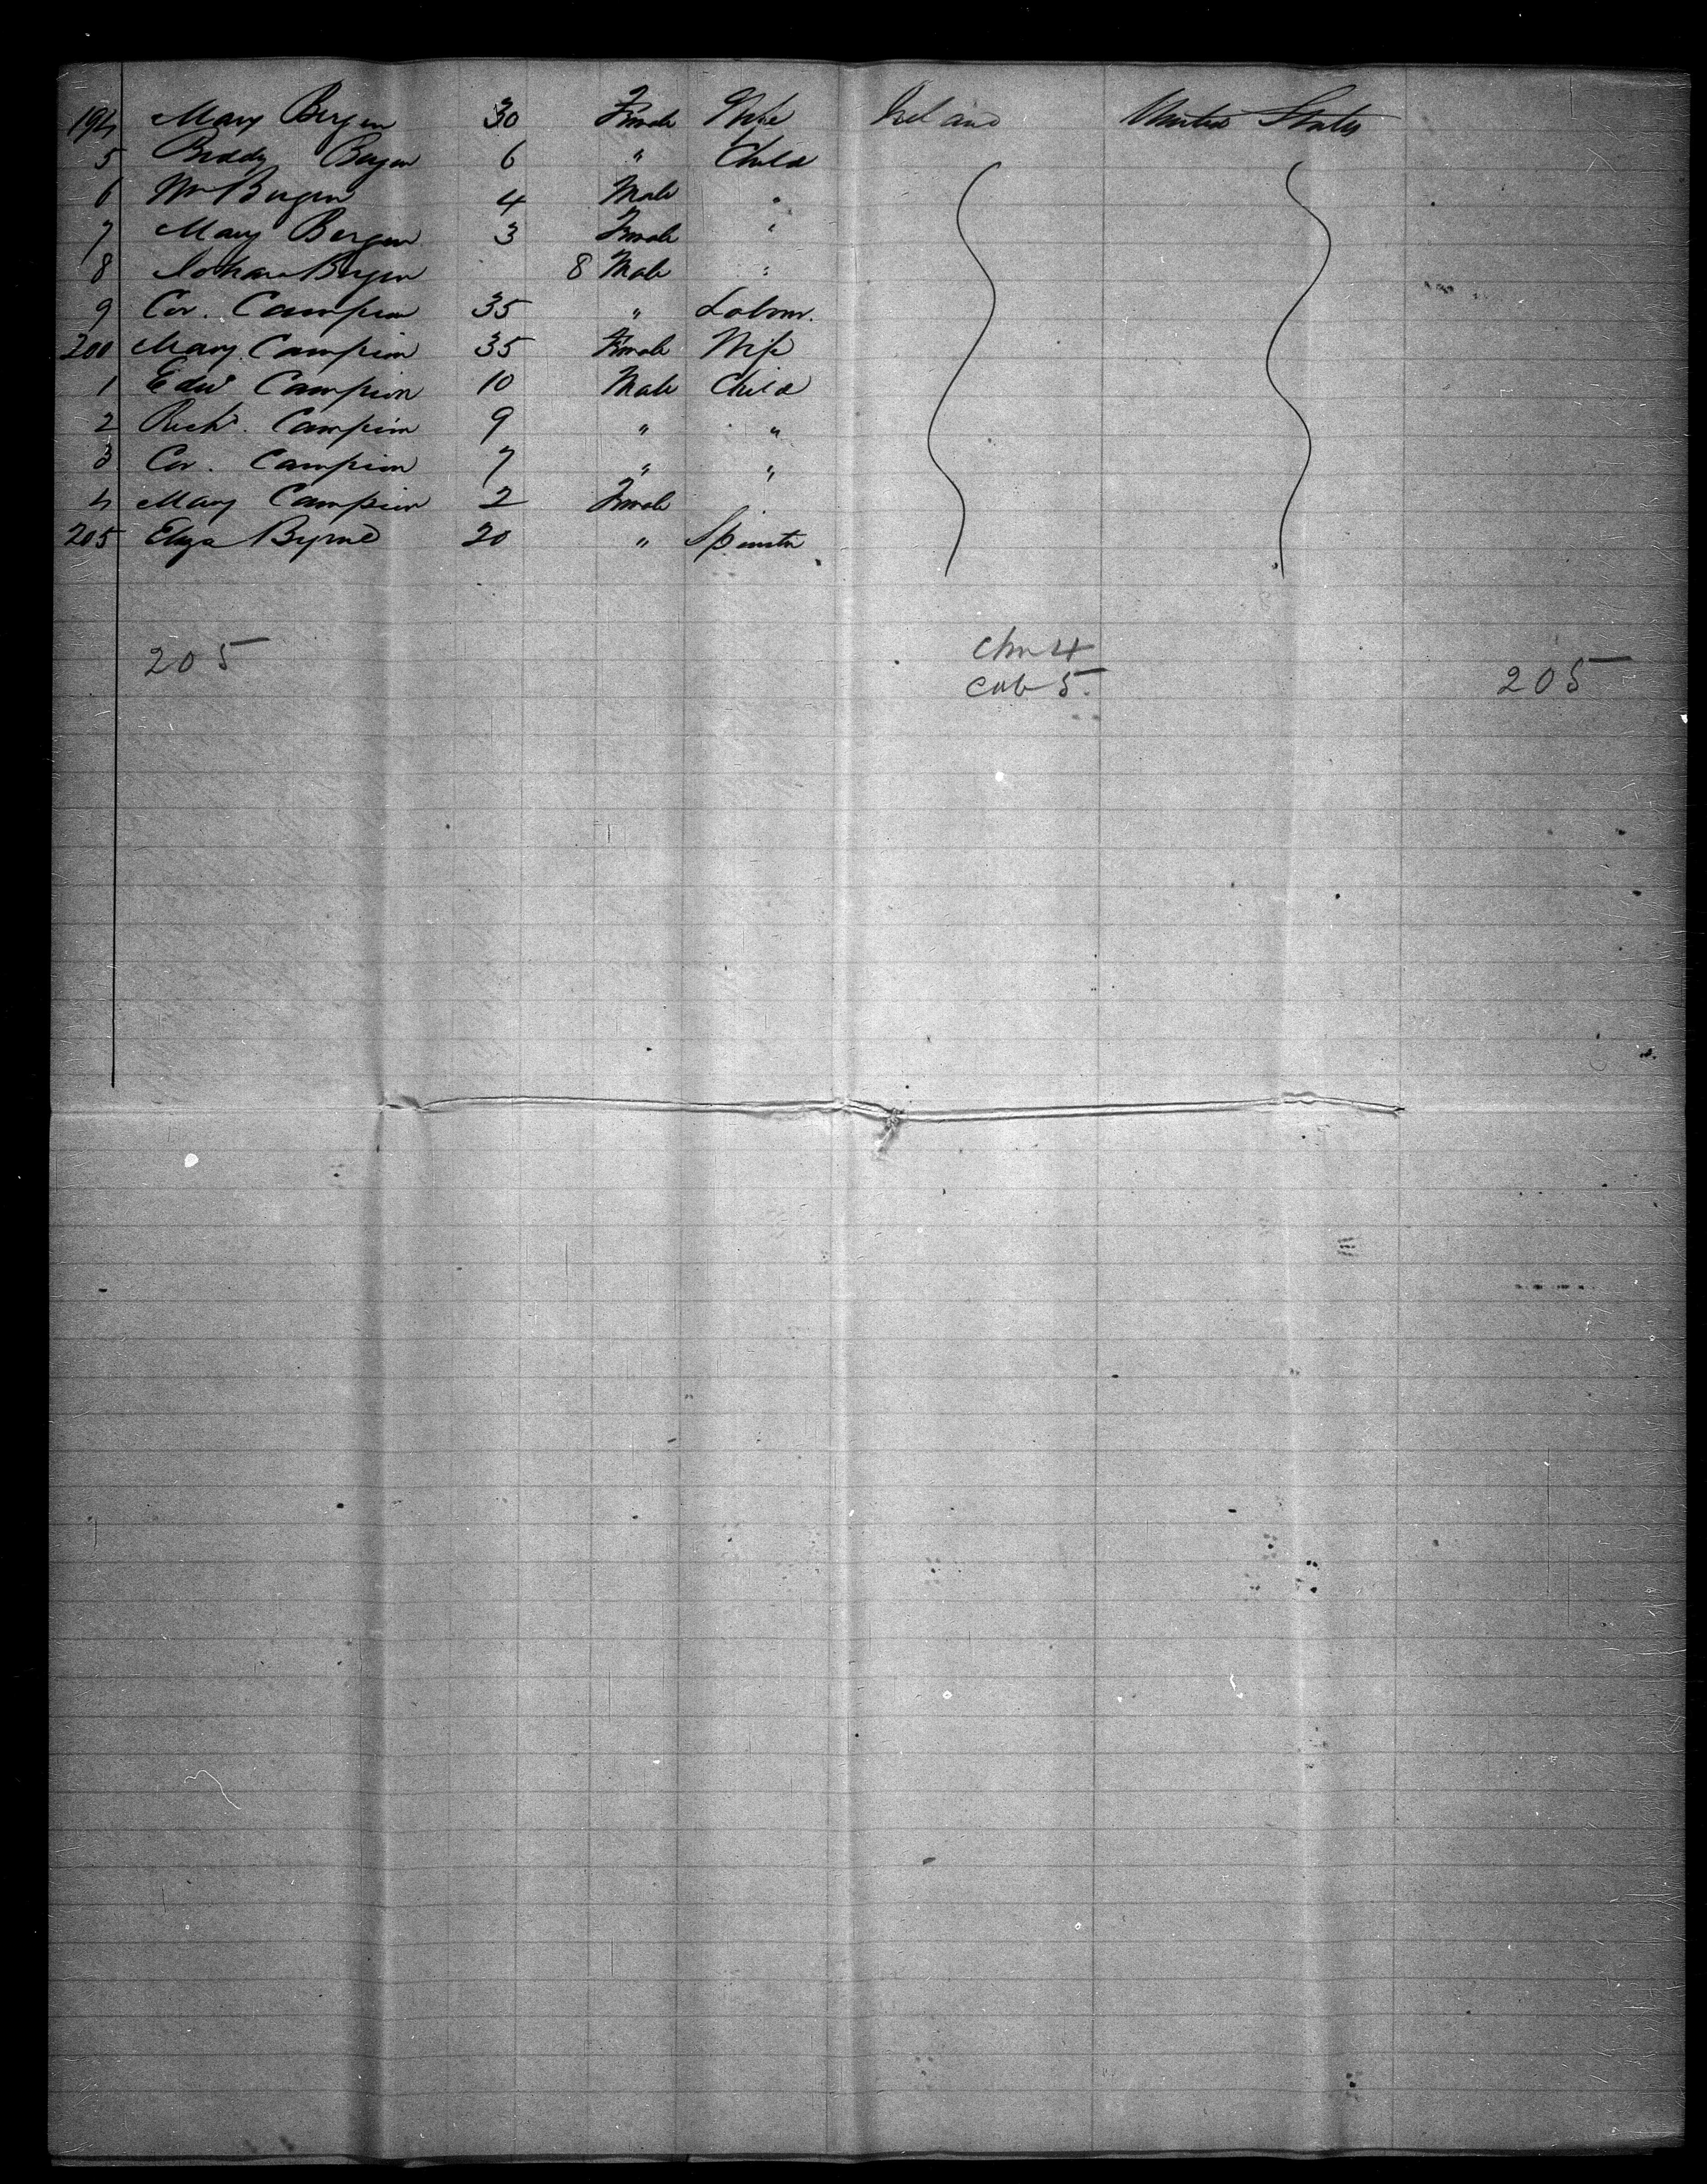 194 Mary Bergen 30 Female Wife Ireland United States
5 Biddy Bergen 6 " Child
6 Wm Bergen 4 Male "
7 Mary Bergen 3 Female "
8 Bergen 8 Male "
9 Cor. Campion 35 " Labour.
200 Mary Campion 35 Female Wife
1 Edwd Campion 10 Male Child
2 Richd. Campion 9 " "
3 Cor. Campion 7 " "
4 Mary Campion 2 Female
205 Eliza Byrne 20 " Spinster
205 chn 4
cab 5. 205